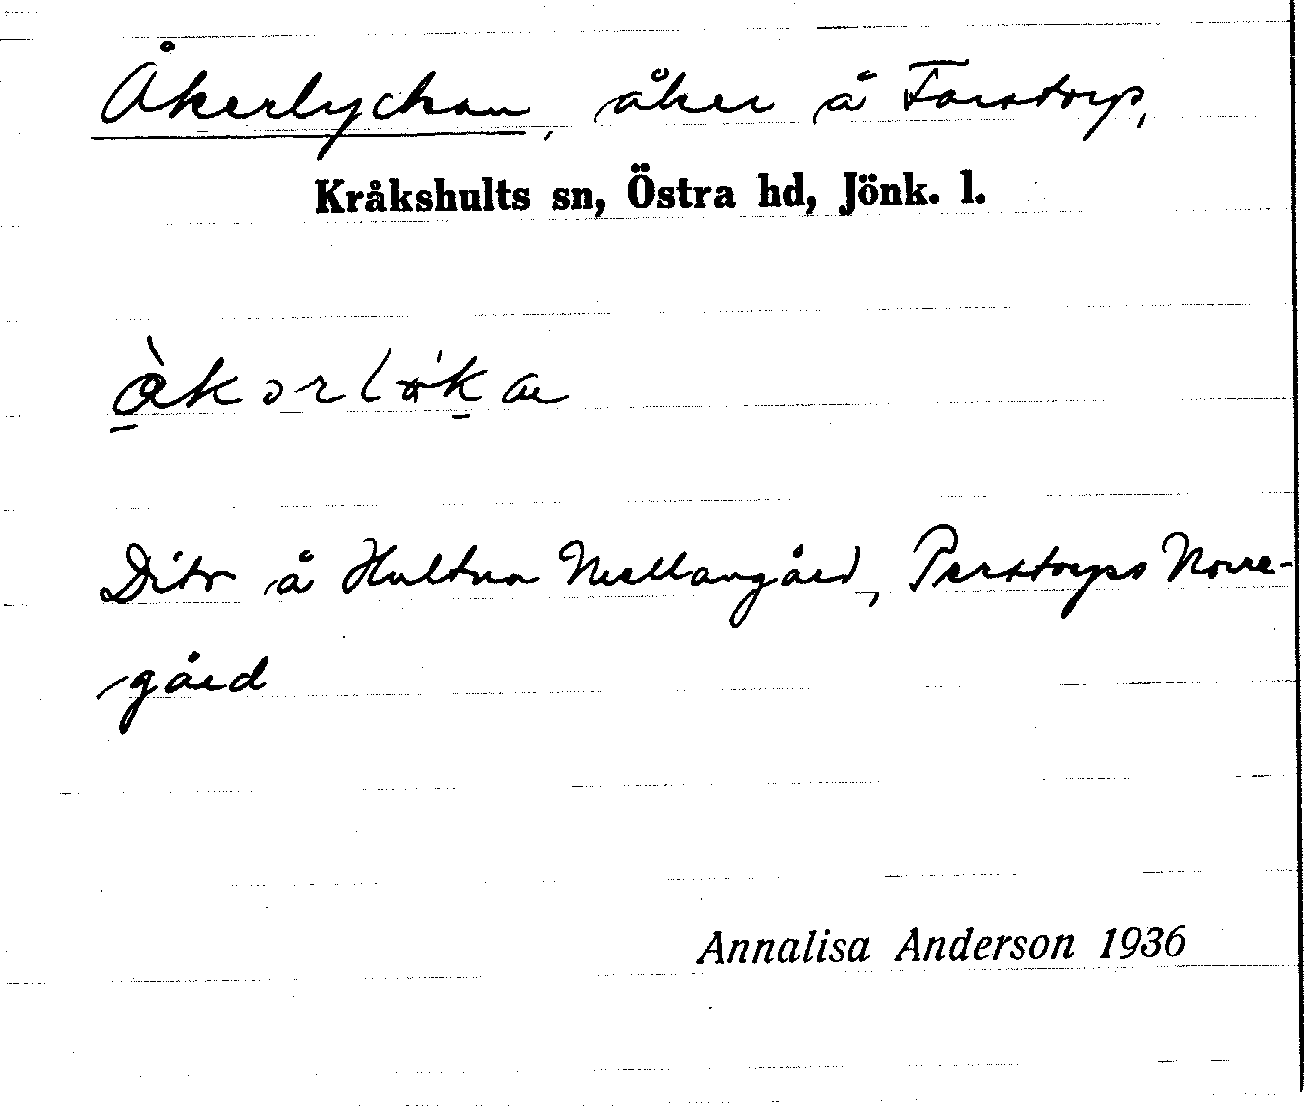 Åkerlyckan, åker å Farstorp,
Kråkshults sn, Östra hd, Jönk. l.
Dito å Hultna Mellangård, Perstorps Norre-
gård
Annalisa Anderson 1936